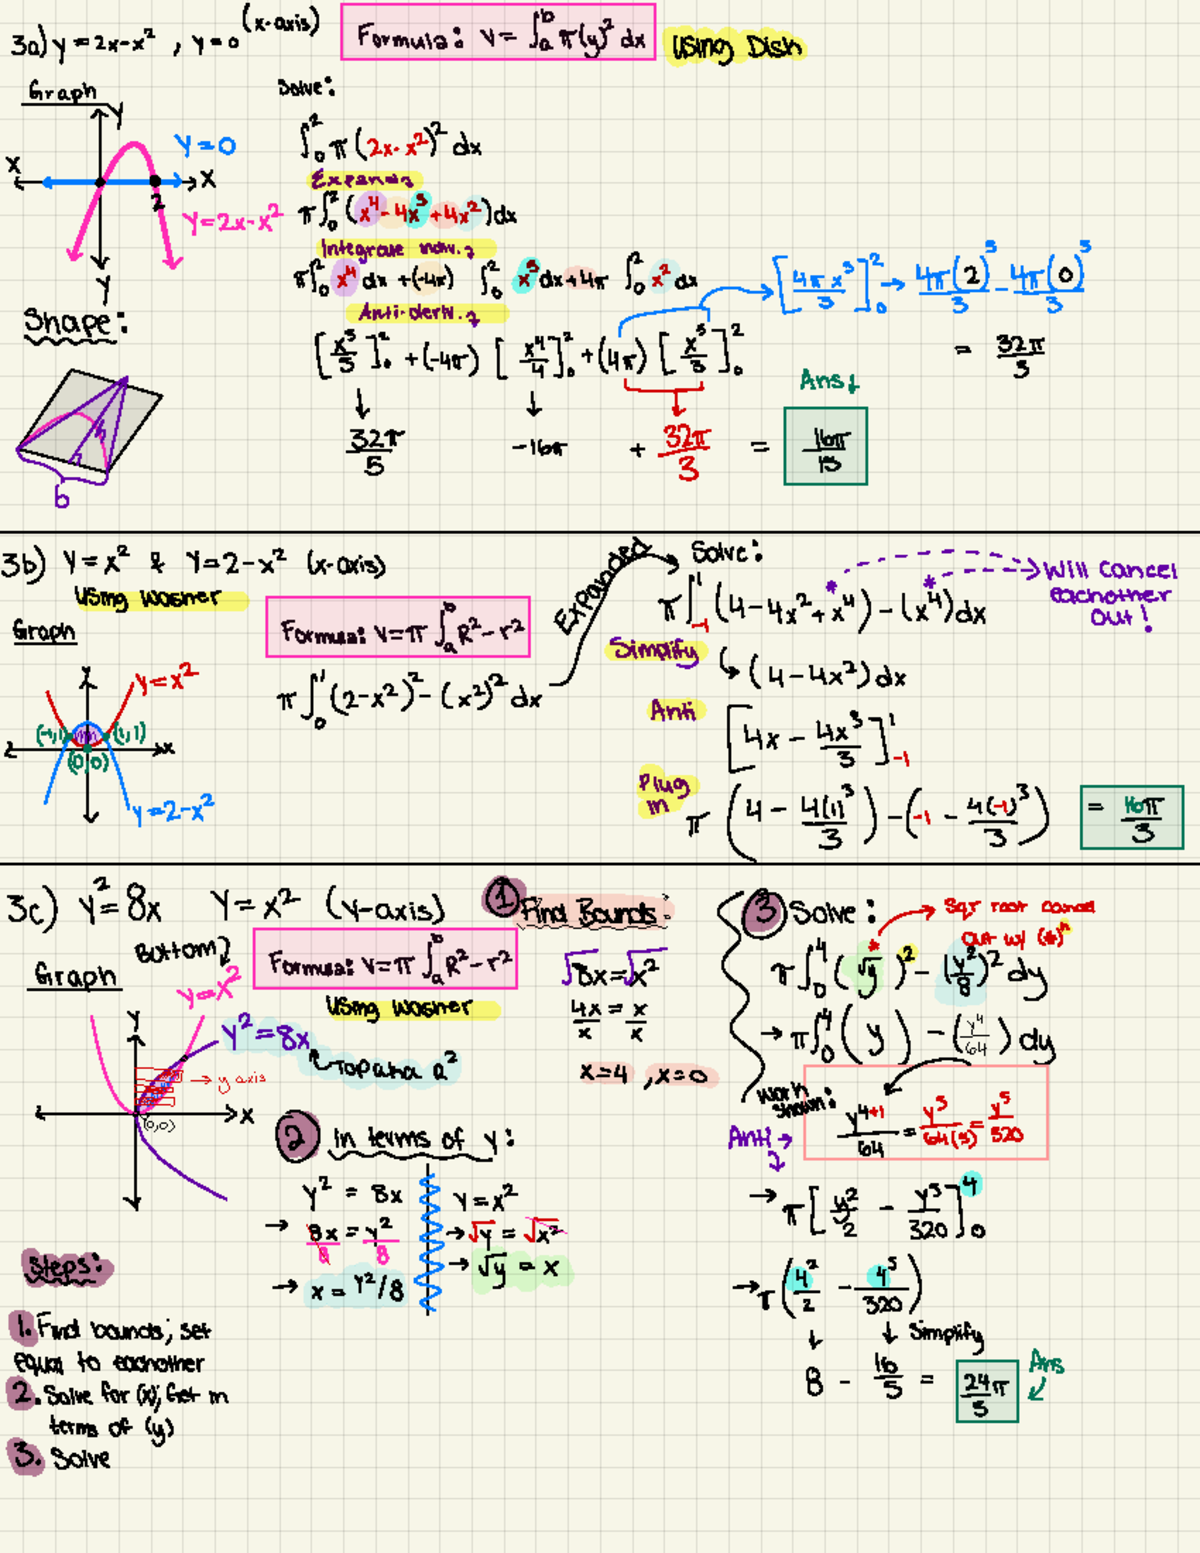 3a) y = 2x-x² , y=0 (x-axis)
Formula: V= ∫ₐᵇ π(y)² dx
Using Dish
Graph
Solve:
Y
X
X
Y
2
Y=0
Y=2x-x²
∫₀² π (2x-x²)² dx
Expand
π∫₀² (x⁴-4x³+4x²)dx
Integrate indiv.
π∫₀² x⁴ dx +(-4π) ∫₀² x³ dx+4π ∫₀² x² dx
Anti-deriv.
[x⁵/5]₀² +(-4π) [x⁴/4]₀² +(4π) [x³/3]₀²
→ [4πx³/3]₀² → 4π(2)³/3 - 4π(0)³/3
= 32π/3
↓ 32π/5 ↓ -16π + ↓ 32π/3 = 16π/15
Ans↓
Shape:
h
b
3b) Y=x² & Y=2-x² (x-axis)
Using Washer
Formula: V=π ∫ₐᵇ R²-r²
Graph
y
x
y=x²
(-1,1)
(1,1)
(0,0)
y=2-x²
π ∫₀¹ (2-x²)² - (x²)² dx
Expanded
Solve:
π∫₋₁¹ (4-4x²+x⁴) - (x⁴)dx
* * → Will cancel
eachother
out!
Simplify
↳ (4-4x²)dx
Anti
[4x - 4x³/3]₋₁¹
Plug
in
π (4 - 4(1)³/3) - (-1 - 4(-1)³/3) = 16π/3
3c) y²=8x Y=x² (Y-axis)
Formula: V=π ∫ₐᵇ R²-r²
Using Washer
Graph
Bottom
y=x²
Y
X
y²=8x
→ y axis
(0,0)
① Find Bounds:
√8x=√x²
4x/x = x/x
x=4 , x=0
② in terms of y:
y² = 8x
→ 8x/8 = y²/8
→ x = Y²/8
y=x²
→ √y = √x²
→ √y = x
③ Solve:
→ Sqr root cancel
out w/ (*)ⁿ
π∫₀⁴ (√y)² - (y²/8)² dy
→ π∫₀⁴ (y) - (y⁴/64) dy
Work
shown:
y⁴⁺¹/64 = y⁵/64(5) = y⁵/320
Anti →
→ π [y²/2 - y⁵/320]₀⁴
→ π (4²/2 - 4⁵/320)
↓ ↓ Simplify
8 - 16/5 = 24π/5
Ans
Steps:
1. Find bounds; set
equal to eachother
2. Solve for (x), Get in
terms of (y)
3. Solve